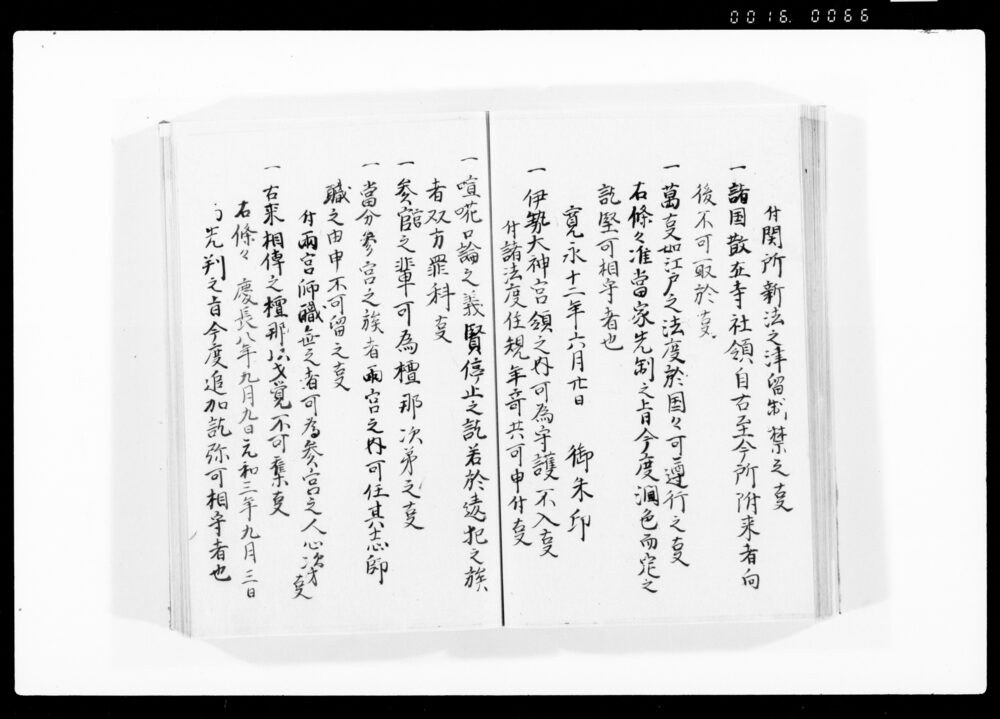 0016.0066
付関所新法之津留制禁之叓
一諸国散在寺社領自古至今所附来者向
後不可取於叓
一萬叓如江戸之法度於国々可遵行之叓
右條々准當家先制之旨今度潤色而定之
訖堅可相守者也
寛永十二年六月廿日 御朱印
一伊勢大神宮領之内可為守護不入叓
付諸法度任規年寄共可申付叓
一喧𠵅口論之義賢停止之訖若於違犯之族
者双方罪科叓
一参宮之輩可為檀那次第之叓
一當分参宮之族者両宮之内可任其志師
職之由申不可留之叓
付両宮師職無之者可為参宮之人心次才叓
一右来相傳之檀那 覚不可奪叓
右條々 慶長八年九月九日元和三年九月三日
先判之旨今度追加訖弥可相守者也